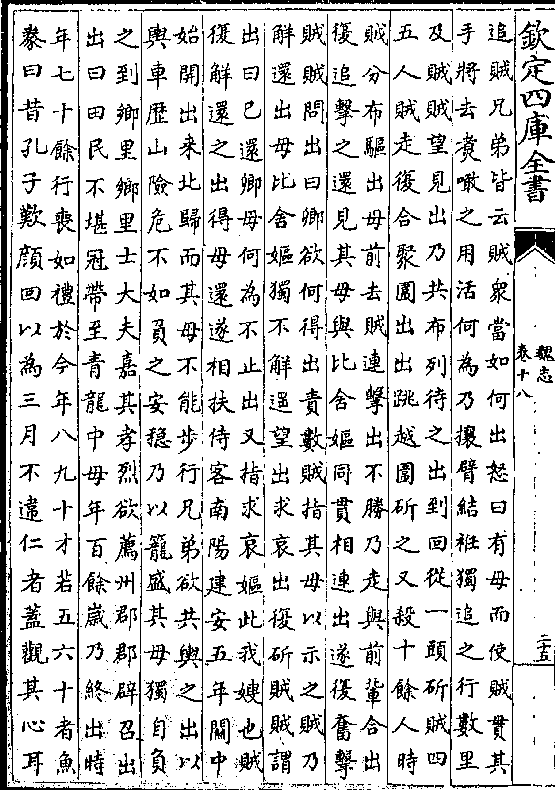 欽定四庫全書
魏志
卷十八
二十五
追賊兄弟皆云賊衆當如何出怒曰有母而使賊貫其
手將去煑噉之用活何為乃攘臂結袵獨追之行數里
及賊賊望見出乃共布列待之出到回從一頭斫賊四
五人賊走復合聚圍出出跳越圍斫之又殺十餘人時
賊分布驅出母前去賊連擊出不勝乃走與前輩合出
復追擊之還見其母與比舍嫗同貫相連出遂復奮擊
賊賊問出曰卿欲何得出責數賊指其母以示之賊乃
解還出母比舍嫗獨不解遥望出求哀出復斫賊賊謂
出曰已還卿母何為不止出又指求哀嫗此我嫂也賊
復解還之出得母還遂相扶侍客南陽建安五年關中
始開出来北歸而其母不能步行兄弟欲共輿之出以
輿車歴山險危不如負之安穏乃以籠盛其母獨自負
之到鄉里鄉里士大夫嘉其孝烈欲薦州郡郡辟召出
出曰田民不堪冠帶至青龍中母年百餘嵗乃終出時
年七十餘行喪如禮於今年八九十才若五六十者魚
豢曰昔孔子歎顔回以為三月不違仁者蓋觀其心耳